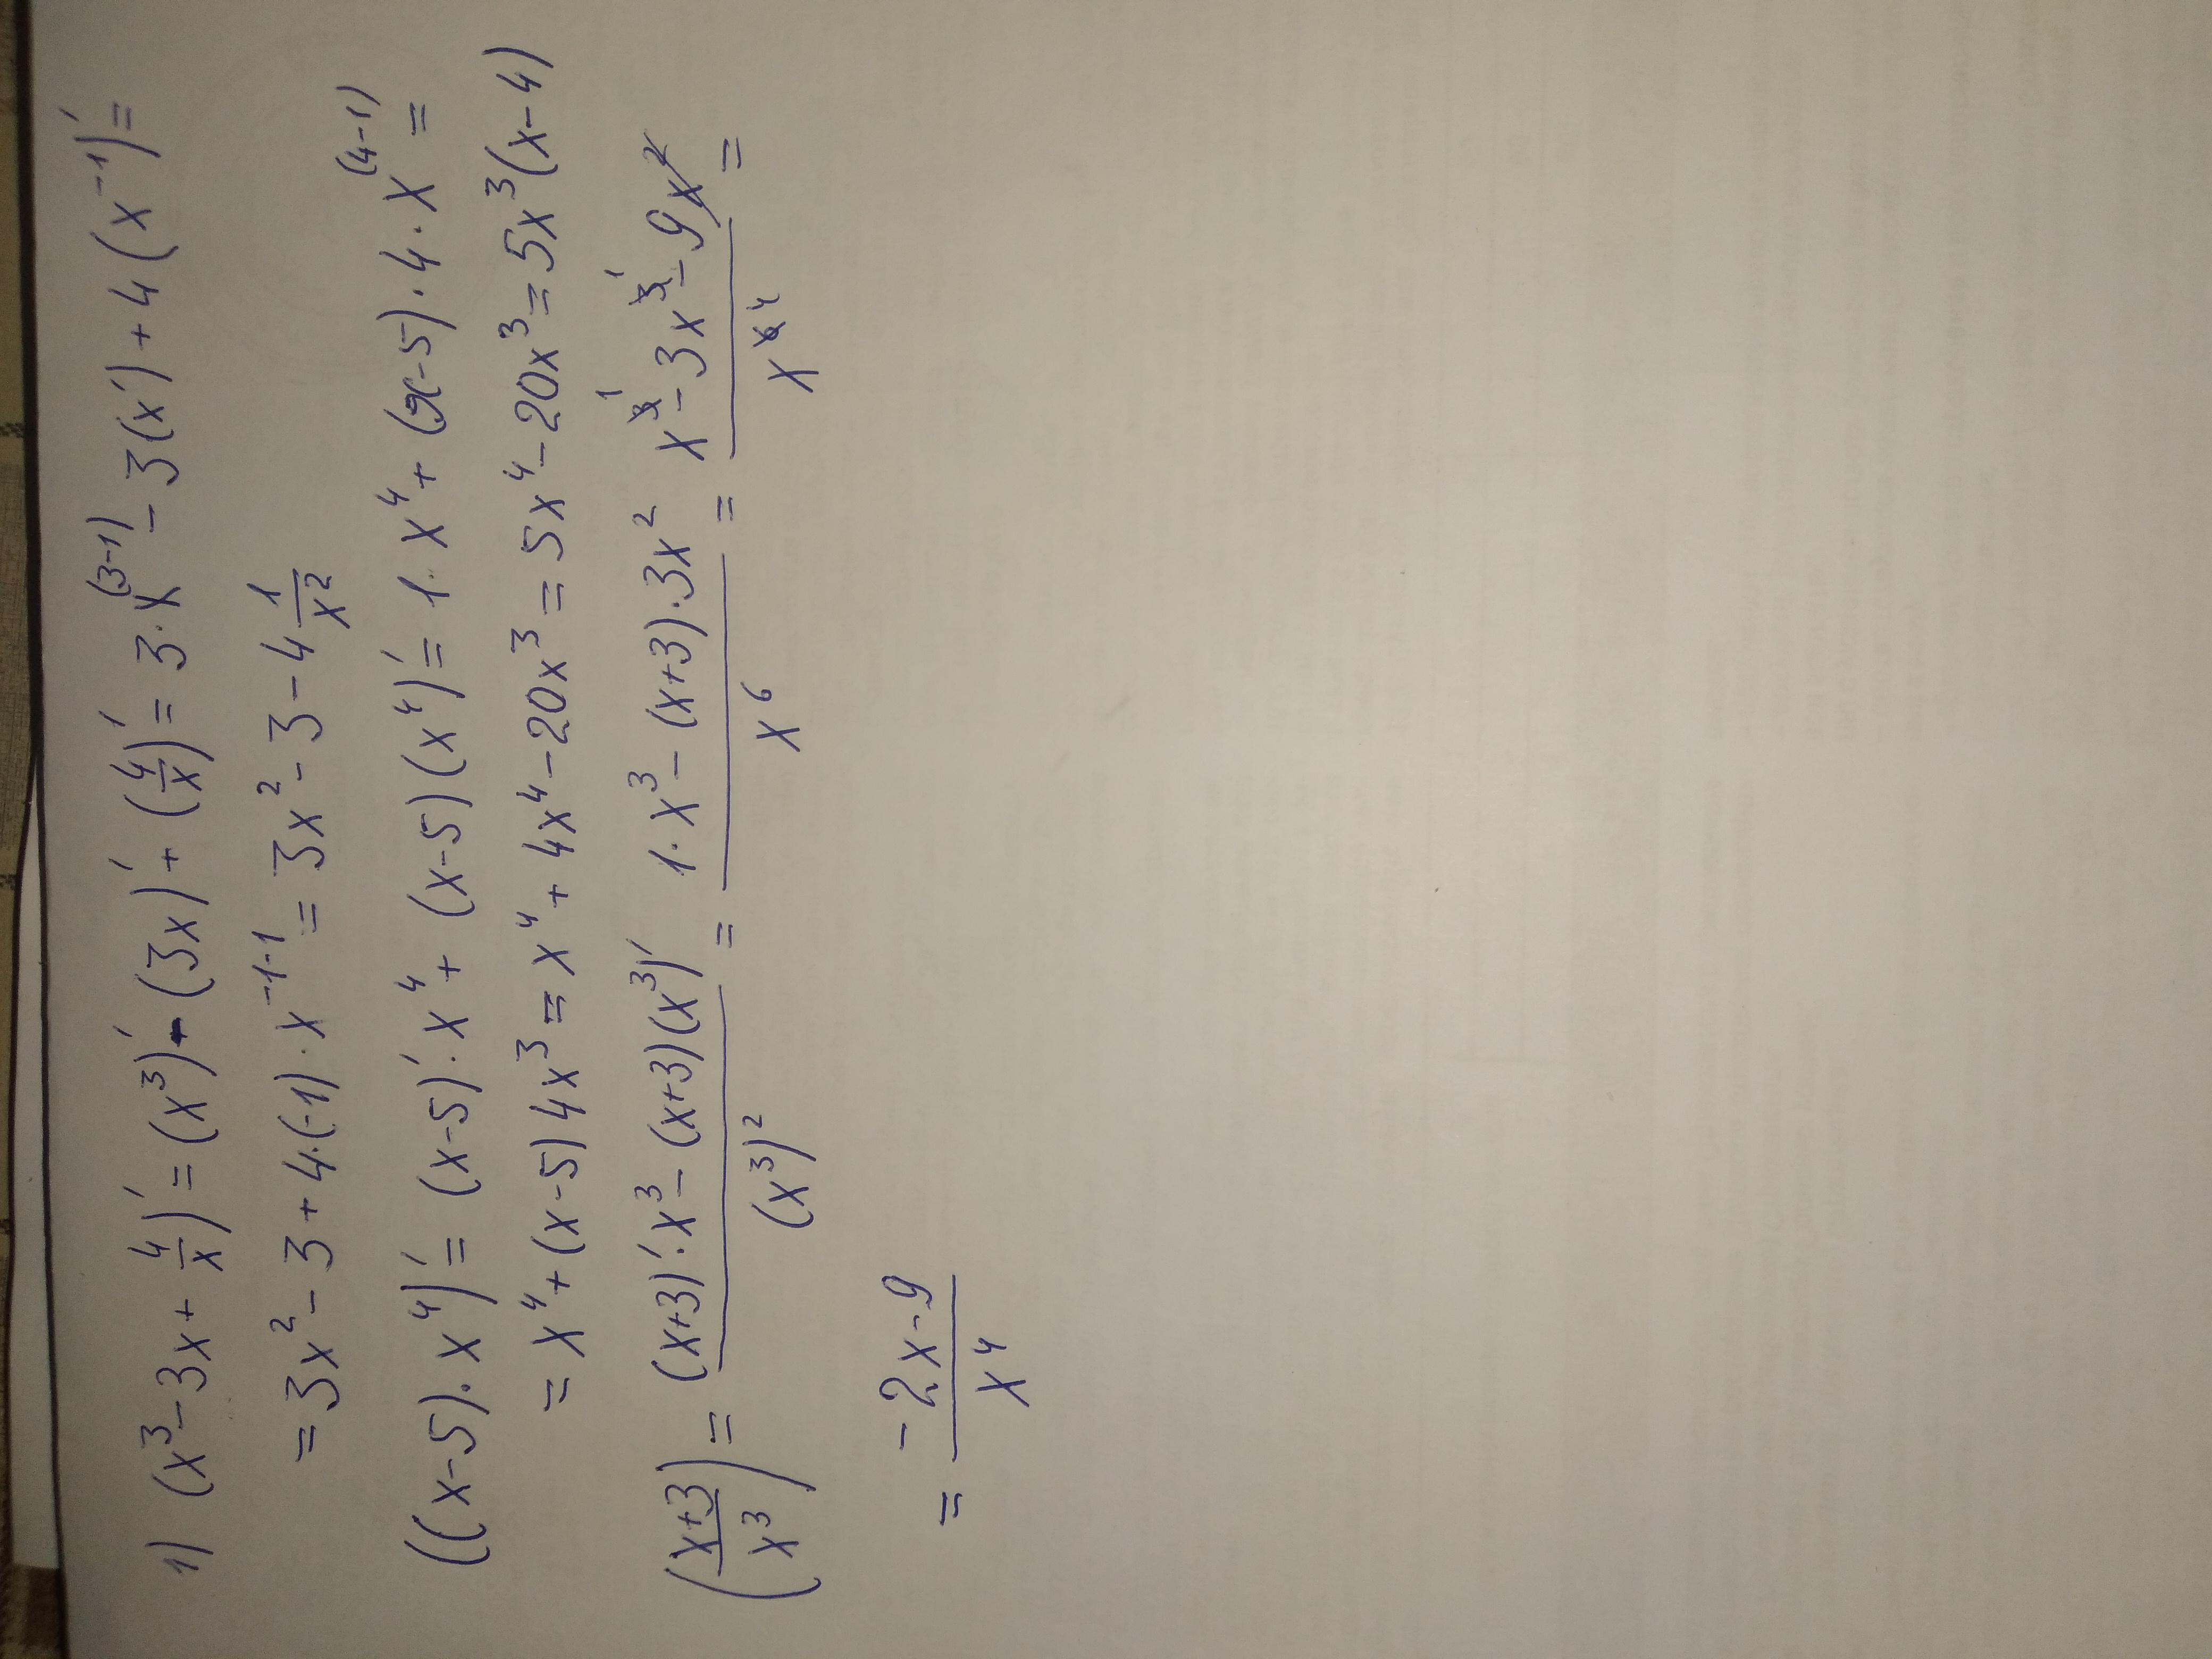 1) (x³-3x+4/x)' = (x³)'-(3x)'+(4/x)' = 3·x⁽³⁻¹⁾-3(x')+4(x⁻¹)' =
= 3x²-3+4·(-1)·x⁻¹⁻¹ = 3x²-3-4 1/x²
((x-5)·x⁴)' = (x-5)'·x⁴+(x-5)(x⁴)' = 1·x⁴+(x-5)·4·x⁽⁴⁻¹⁾ =
= x⁴+(x-5)4x³ = x⁴+4x⁴-20x³ = 5x⁴-20x³ = 5x³(x-4)
((x+3)/x³)' = ((x+3)'·x³-(x+3)(x³)')/(x³)² = (1·x³-(x+3)·3x²)/x⁶ = (x³ ¹-3x³ ¹-9x²)/x⁶ ⁴ =
= (-2x-9)/x⁴